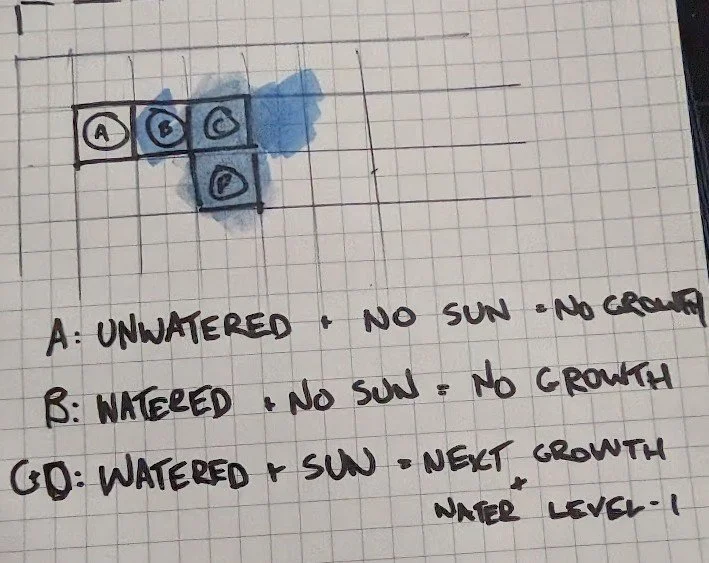 A B C
D
A: UNWATERED + NO SUN = NO GROWTH
B: WATERED + NO SUN = NO GROWTH
C+D: WATERED + SUN = NEXT GROWTH
+
WATER LEVEL-1